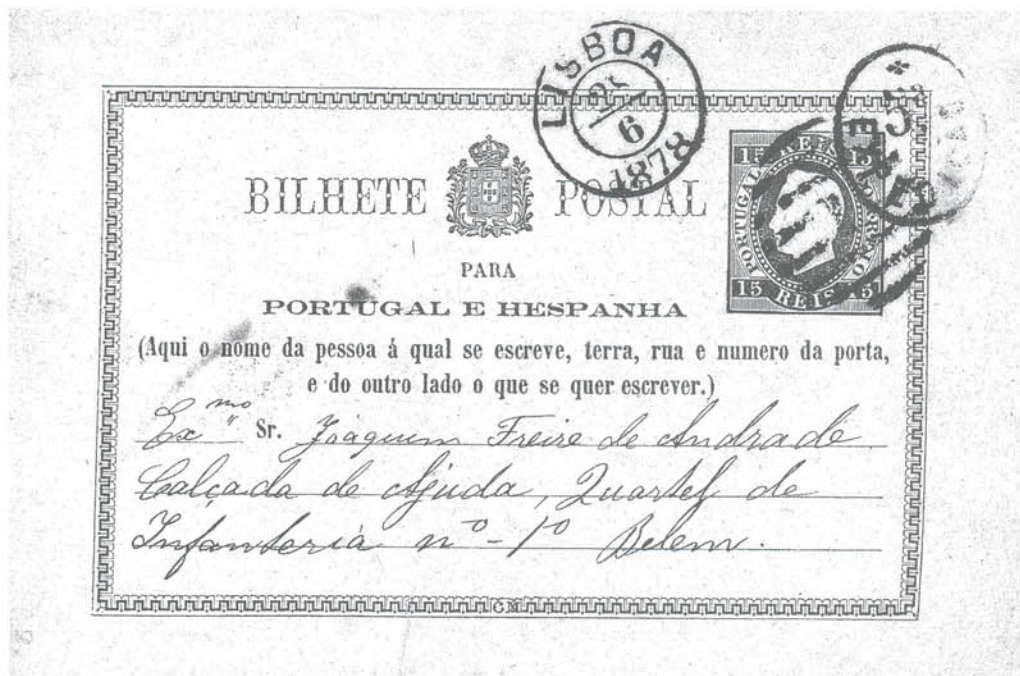 LISBOA
6
1878
BILHETE POSTAL
15 REIS 15
PORTUGAL
15 REIS 15
PARA
PORTUGAL E HESPANHA
(Aqui o nome da pessoa á qual se escreve, terra, rua e numero da porta,
e do outro lado o que se quer escrever.)
Exmo Sr. Joaquim Freire de Andrade
Calçada de Ajuda, Quartel de
Infanteria nº - 1º Belem.
GM